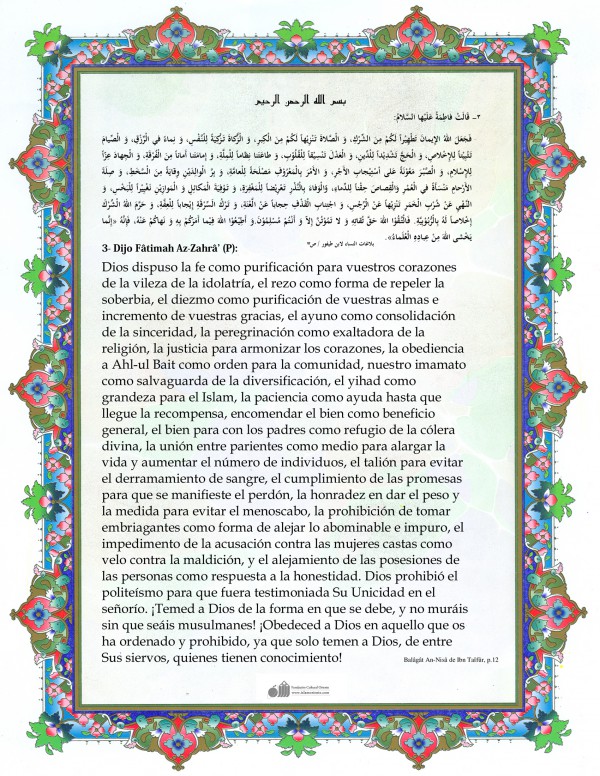 بسم الله الرحمن الرحیم
٣- قَالَتْ فَاطِمَةُ عَلَيْها السَّلامُ:
فَجَعَلَ اللهُ الإيمانَ تَطْهِيراً لَكُمْ مِنَ الشِّرْكِ، وَ الصَّلاةَ تَنْزِيهاً لَكُمْ مِنَ الْكِبرِ، وَ الزَّكاةَ تَزْكِيَةً لِلنَّفْسِ، وَ نِماءً في الرِّزْقِ، وَ الصِّيامَ
تَثْبِيتاً لِلإخْلاصِ، وَ الحَجَّ تَشْدِيداً لِلدِّينِ، وَ العَدْلَ تَنسِيقاً لِلْقُلُوبِ، وَ طاعَتَنا نِظاماً لِلْمِلَّةِ، وَ إمامَتَنا أماناً مِنَ الْفُرْقَةِ، وَ الْجِهادَ عِزّاً
لِلإسْلامِ، وَ الصَّبْرَ مَعُونَةً عَلى اسْتِيجابِ الأجْرِ، وَ الأمْرَ بِالْمَعْرُوفِ مَصْلَحَةً لِلْعامَّةِ، وَ بِرَّ الْوالِدَيْنِ وِقايَةً مِنَ السَّخَطِ، وَ صِلَةَ
الأرْحامِ مَنْسَأةً في الْعُمْرِ، وَ الْقِصاصَ حِقْناً لِلدِّماءِ، وَ الْوَفاءَ بِالنَّذْرِ تَعْرِيضاً لِلْمَغْفِرَةِ، وَ تَوْفِيَةَ الْمَكائِلِ وَ الْمَوازِينِ تَغْيِيراً لِلْبَخْسِ، وَ
النَّهْيَ عَنْ شُرْبِ الْخَمْرِ تَنْزِيهاً عَنْ الرِّجْسِ، وَ اجْتِنابَ الْقَذْفِ حِجاباً عَنْ اللَّعْنَةِ، وَ تَرْكَ السَّرْقَةِ إيجاباً لِلْعِفَّةِ، وَ حَرَّمَ اللهُ الشِّرْكَ
إخْلاصاً لَهُ بِالرُّبُوبِيَّةِ. فَاتَّقُوا اللهَ حَقَّ تُقاتِهِ وَ لا تَمُوتُنَّ إلاّ وَ أنْتُمْ مُسْلِمُونَ وَ أطِيعُوا اللهَ فِيما أمَرَكُمْ بِهِ وَ نَهاكُمْ عَنْهُ، فَإنَّهُ «إنَّما
يَخْشى اللهَ مِنْ عِبادِهِ الْعُلَماءُ».
بلاغات النساء لابن طيفور / ص
3- Dijo Fâtimah Az-Zahrâ’ (P):
Dios dispuso la fe como purificación para vuestros corazones
de la vileza de la idolatría, el rezo como forma de repeler la
soberbia, el diezmo como purificación de vuestras almas e
incremento de vuestras gracias, el ayuno como consolidación
de la sinceridad, la peregrinación como exaltadora de la
religión, la justicia para armonizar los corazones, la obediencia
a Ahl-ul Bait como orden para la comunidad, nuestro imamato
como salvaguarda de la diversificación, el yihad como
grandeza para el Islam, la paciencia como ayuda hasta que
llegue la recompensa, encomendar el bien como beneficio
general, el bien para con los padres como refugio de la cólera
divina, la unión entre parientes como medio para alargar la
vida y aumentar el número de individuos, el talión para evitar
el derramamiento de sangre, el cumplimiento de las promesas
para que se manifieste el perdón, la honradez en dar el peso y
la medida para evitar el menoscabo, la prohibición de tomar
embriagantes como forma de alejar lo abominable e impuro, el
impedimento de la acusación contra las mujeres castas como
velo contra la maldición, y el alejamiento de las posesiones de
las personas como respuesta a la honestidad. Dios prohibió el
politeísmo para que fuera testimoniada Su Unicidad en el
señorío. ¡Temed a Dios de la forma en que se debe, y no muráis
sin que seáis musulmanes! ¡Obedeced a Dios en aquello que os
ha ordenado y prohibido, ya que solo temen a Dios, de entre
Sus siervos, quienes tienen conocimiento!
Balâgât An-Nisâ de Ibn Taifûr, p.12
Fundación Cultural Oriente
www.islamoriente.com